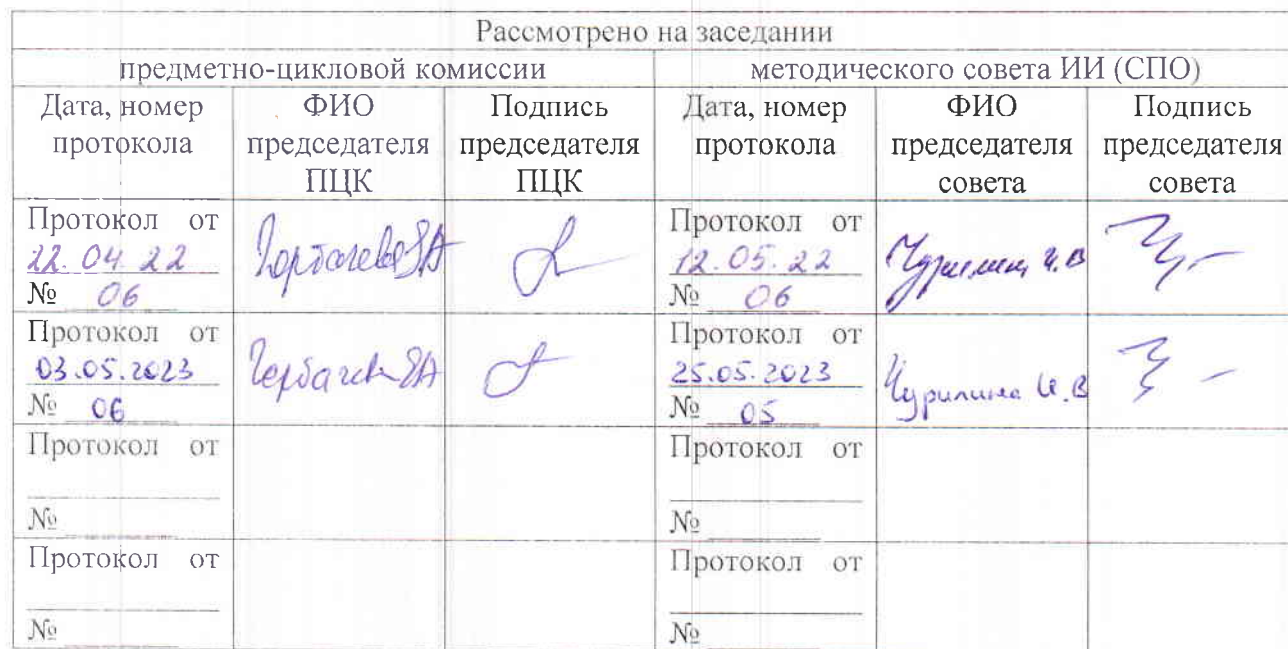 Рассмотрено на заседании
предметно-цикловой комиссии
методического совета ИИ (СПО)
Дата, номер
протокола
ФИО
председателя
ПЦК
Подпись
председателя
ПЦК
Дата, номер
протокола
ФИО
председателя
совета
Подпись
председателя
совета
Протокол от
22.04.22
№ 06
Горбачева ЯА
Протокол от
12.05.22
№ 06
Чурилина И.В
Протокол от
03.05.2023
№ 06
Протокол от
25.05.2023
№ 05
Чурилина И.В
Протокол от
№
Протокол от
№
Протокол от
№
Протокол от
№